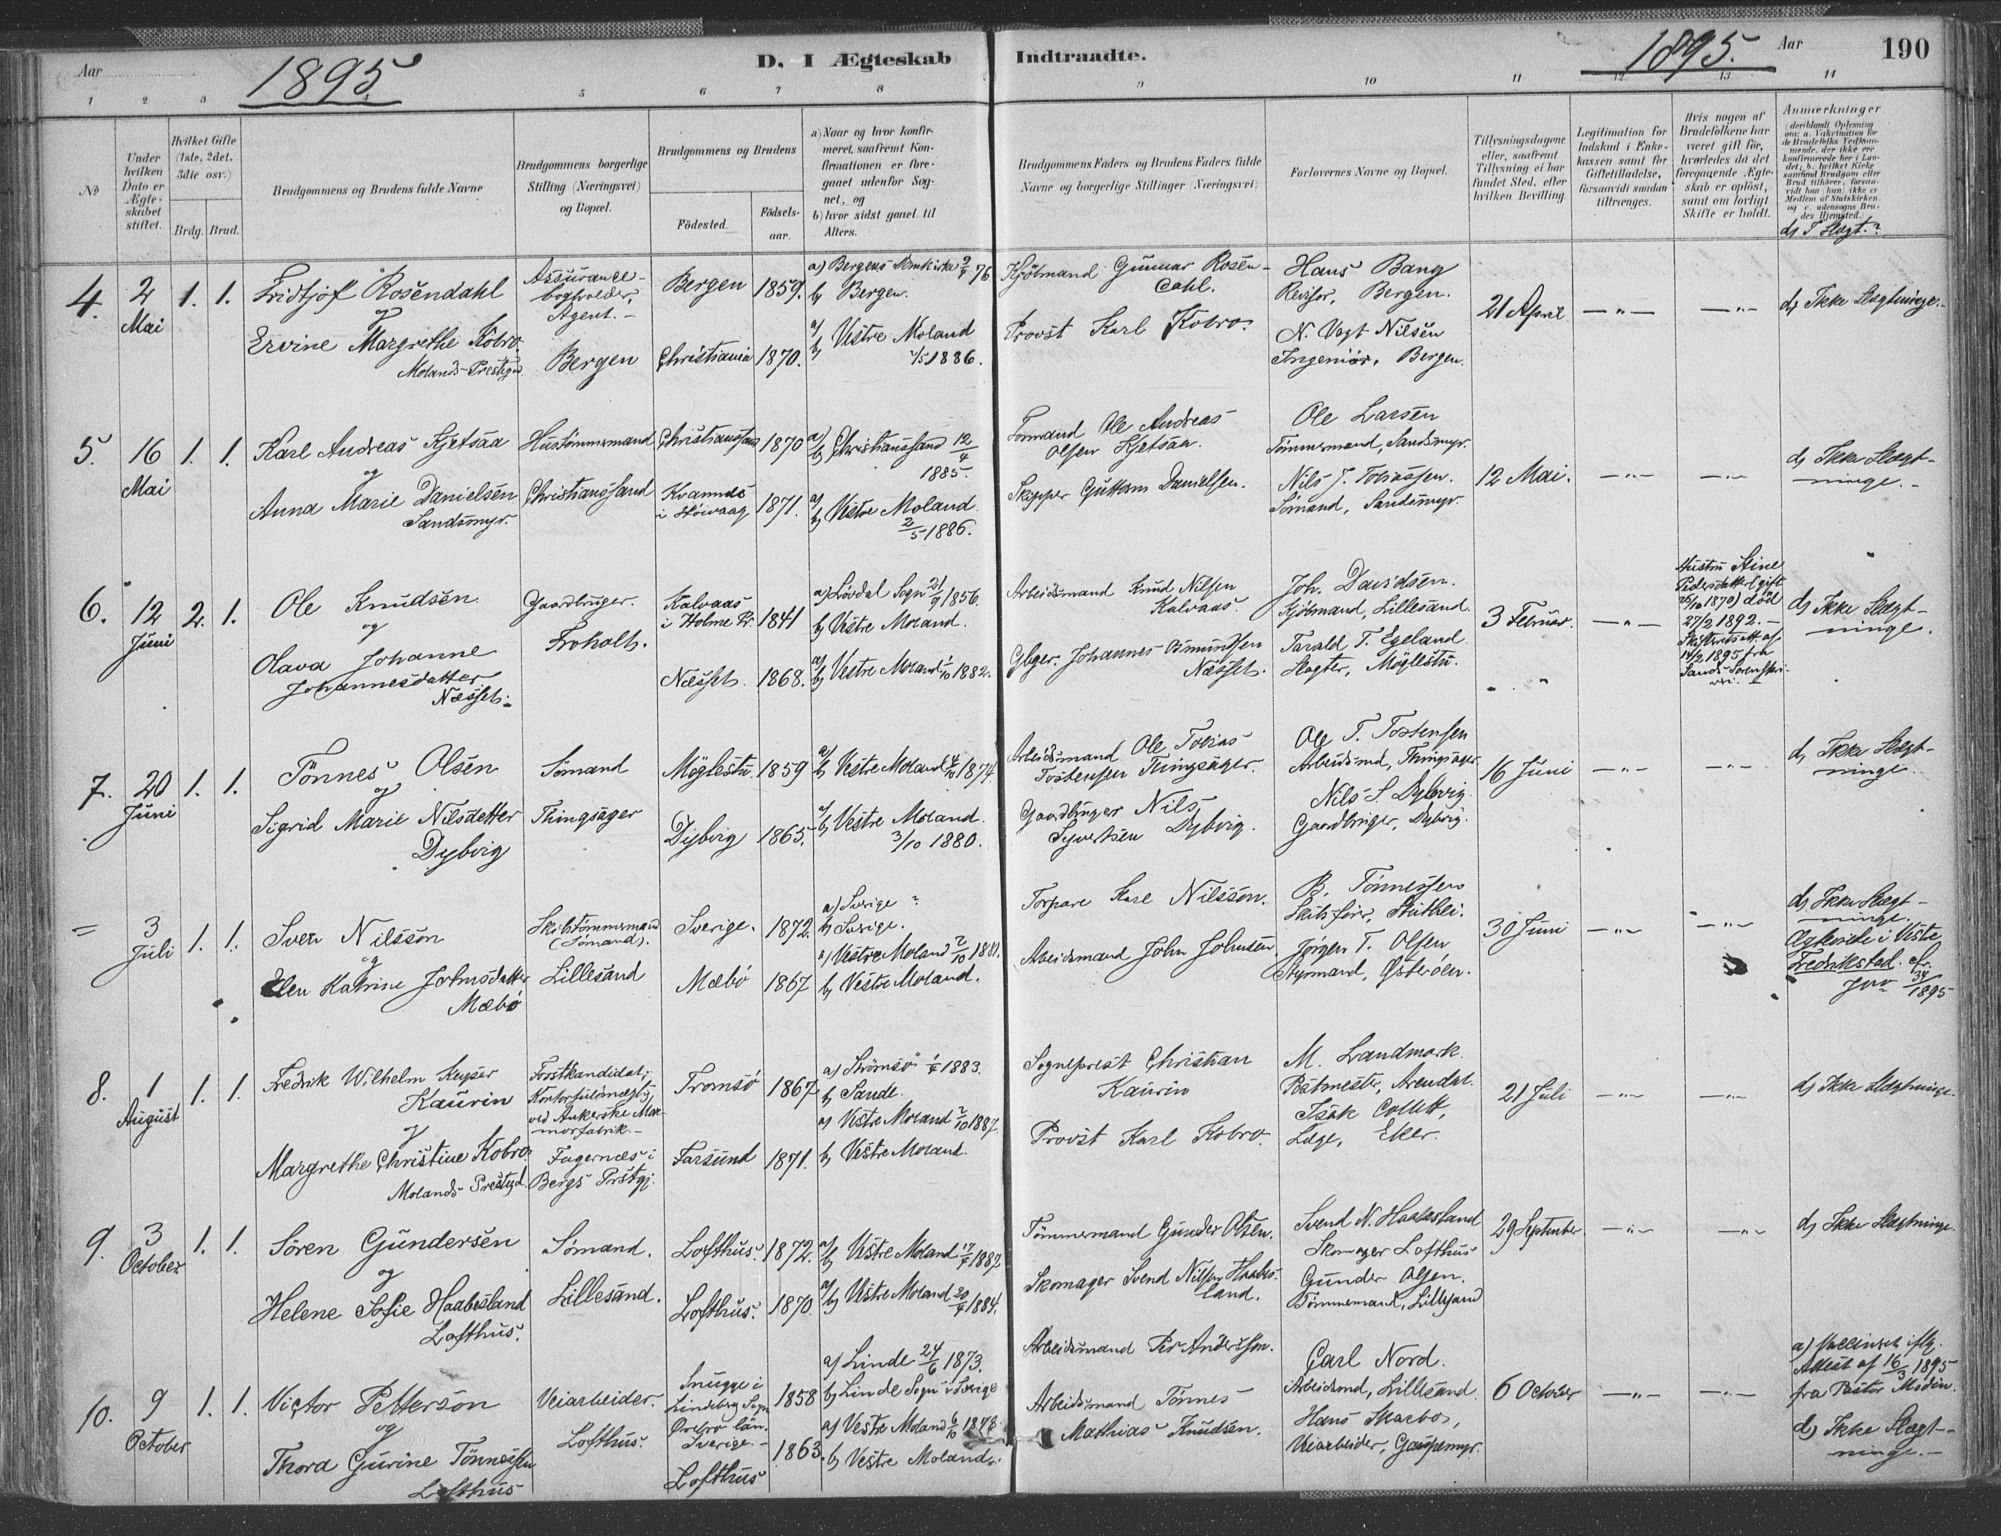 Aar 1895. D. I Ægteskab Indtraadte. 1895. Aar 190
1 2 3 5 6 7 8 9 10 11 12 13 14
No
Under hvilken Dato er Ægteskabet stiftet.
Hvilket Gifte (1ste, 2det, 3die osv.)
Brdg. Brud.
Brudgommens og Brudens fulde Navne
Brudgommens borgerlige Stilling (Næringsvei) og Bopæl.
Brudgommens og Brudens
Fødested. Fødselsaar.
a) Naar og hvor konfirmeret, saafremt Konfirmationen er foregaaet udenfor Sognet, og
b) hvor sidst gaaet til Alters.
Brudgommens Faders og Brudens Faders fulde Navne og borgerlige Stillinger (Næringsvei)
Forlovernes Navne og Bopæl.
Tillysningsdagene eller, saafremt Tillysning ei har fundet Sted, efter hvilken Bevilling.
Legitimation for Indskud i Enkekassen samt for Giftetilladelse, forsaavidt saadan tiltrænges.
Hvis nogen af Brudefolkene har været gift før, hvorledes da det foregaaende Ægteskab er opløst, samt om lovligt Skifte er holdt.
Anmærkninger
d) I Slægt?
4. 2 Mai 1. 1.
Fridtjof Rosendahl
og
Ervine Margrethe Kobro
Molands Prestegd.
Assurancebogholder,
Agent.
Bergen
Bergen 1859.
Christiania 1870.
a) Bergens Domkirke 2/4 76
b) Bergen.
a) b) Vestre Moland
2/5 1886.
Kjøbmand Gunnar Rosendahl.
Provst Karl Kobro.
Hans Bang
Revisor, Bergen.
N. Vogt Nilsen
Ingeniør, Bergen.
21 April — " — — " —
d) Ikke Slægtninge.
5. 16 Mai 1. 1.
Karl Andreas Kjetsaa
og
Anna Marie Danielsen
Sandsmyr.
Hustømmermand
Christianssand
Christianssand 1870
Kvannes
i Høivaag 1871.
a) b) Christianssand 12/4
1885.
a) b) Vestre Moland
2/5 1886.
Formand Ole Andreas
Olsen Kjetsaa.
Skipper Guttorm Danielsen.
Ole Larsen
Tømmermand, Sandsmyr.
Nils J. Tobiassen.
Sømand, Sandsmyr.
12 Mai. — " — — " —
d) Ikke Slægtninge.
6. 12 Juni 2. 1.
Ole Knudsen
og
Olava Johanne
Johannesdatter
Næsset.
Gaardbruger.
Froholt.
Kalvaas
i Holme Pr. 1841
Næsset. 1868.
a) Løvdal Sogn 21/9 1856.
b) Vestre Moland.
a) b) Vestre Moland 1/10 1882.
Arbeidsmand Knud Nilsen
Kalvaas.
Gbgr. Johannes Omundsen
Næsset.
Joh. Davidsen.
Kjøbmand, Lillesand.
Tarald T. Egeland
Slagter, Møglestu.
3 Februar. — " —
Hustru Stine
Pedersdatter (gift
26/10 1870) død
27/2 1892. —
Skifteattest af
14/2 1895 fra
Sands Sorenskriveri.
d) Ikke Slægtninge.
7. 20 Juni 1. 1.
Tønnes Olsen
og
Sigrid Marie Nilsdatter
Dybvig
Sømand
Thingsager
Møglestu. 1859
Dybvig 1865.
a) b) Vestre Moland 4/10 1874.
a) b) Vestre Moland.
3/10 1880.
Arbeidsmand Ole Tobias
Tostensen Thingsager.
Gaardbruger Nils
Syvertsen Dybvig.
Ole T. Tostensen
Arbeidsmd, Thingsager.
Nils S. Dybvig
Gaardbruger, Dybvig.
16 Juni — " — — " —
d) Ikke Slægtninge.
= 3 Juli 1. 1.
Sven Nilsson
og
Elen Katrine Johnsdatter
Mæbø
Skibstømmermand
(Sømand).
Lillesand
Sverige. 1872.
Mæbø 1867
a) Sverige ?
b) Sverige.
a) Vestre Moland 2/10 1881.
b) Vestre Moland.
Torpare Karl Nilsson.
Arbeidsmand John Johnsen
B. Tønnessen
Skibsfører,
Jørgen T. Olsen
Styrmand, Østerøen.
30 Juni — " — — " —
d) Ikke Slægtninge.
Ægteviede i Vestre
Fredrikstad. cfr.
Jnr 34/1895
8. 1 August 1. 1.
Fredrik Wilhelm Keyser
Kaurin
og
Margrethe Christine Kobro
Molands Prestgd.
Forstkandidat,
Kontorfuldmægtig
ved Ankerske Marmorfabrik.
Fagernæs i
Bergs Prstgj.
Tromsø 1867
Farsund 1871.
a) Strømsø 1/4 1883.
b) Sande.
a) Vestre Moland 2/10 1887.
b) Vestre Moland.
Sogneprest Christian
Kaurin
Provst Karl Kobro.
M. Landmark.
Postmester, Arendal.
Isak Collett,
Læge, Eker.
21 Juli — " — — " —
d) Ikke Slægtninge.
9. 3 October 1. 1.
Søren Gundersen
og
Helene Sofie Haabesland
Lofthus.
Sømand.
Lillesand.
Lofthus. 1872.
Lofthus. 1870
a) b) Vestre Moland 17/4 1887
a) b) Vestre Moland 20/4 1884.
Tømmermand Gunder Olsen.
Skomager Svend Nilsen Haabesland.
Svend N. Haabesland
Skomager Lofthus
Gunder Olsen.
Tømmermand, Lillesand
29 September — " — — " —
d) Ikke Slægtninge
10. 9 October 1. 1.
Victor Petterson
og
Thora Gurine Tønnessen
Lofthus
Veiarbeider.
Lofthus.
Snugge i
Lindesberg Sogn
Ørebro län.
Sverige. 1858
Lofthus 1863.
a) Linde 24/6 1873.
b) Linde Sogn i Sverige
a) Vestre Moland 6/10 1878
b) Vestre Moland.
Arbeidsmand Per Andersson.
Arbeidsmand Tønnes
Mathias Knudsen.
Carl Nord.
Arbeidsmd, Lillesand.
Hans Skarbo,
Veiarbeider, Gaupemyr.
6 October — " — — " —
a) Vaccineret iflg.
Attest af 16/3 1895
fra Pastor Modin.
d) Ikke Slægtninge. —